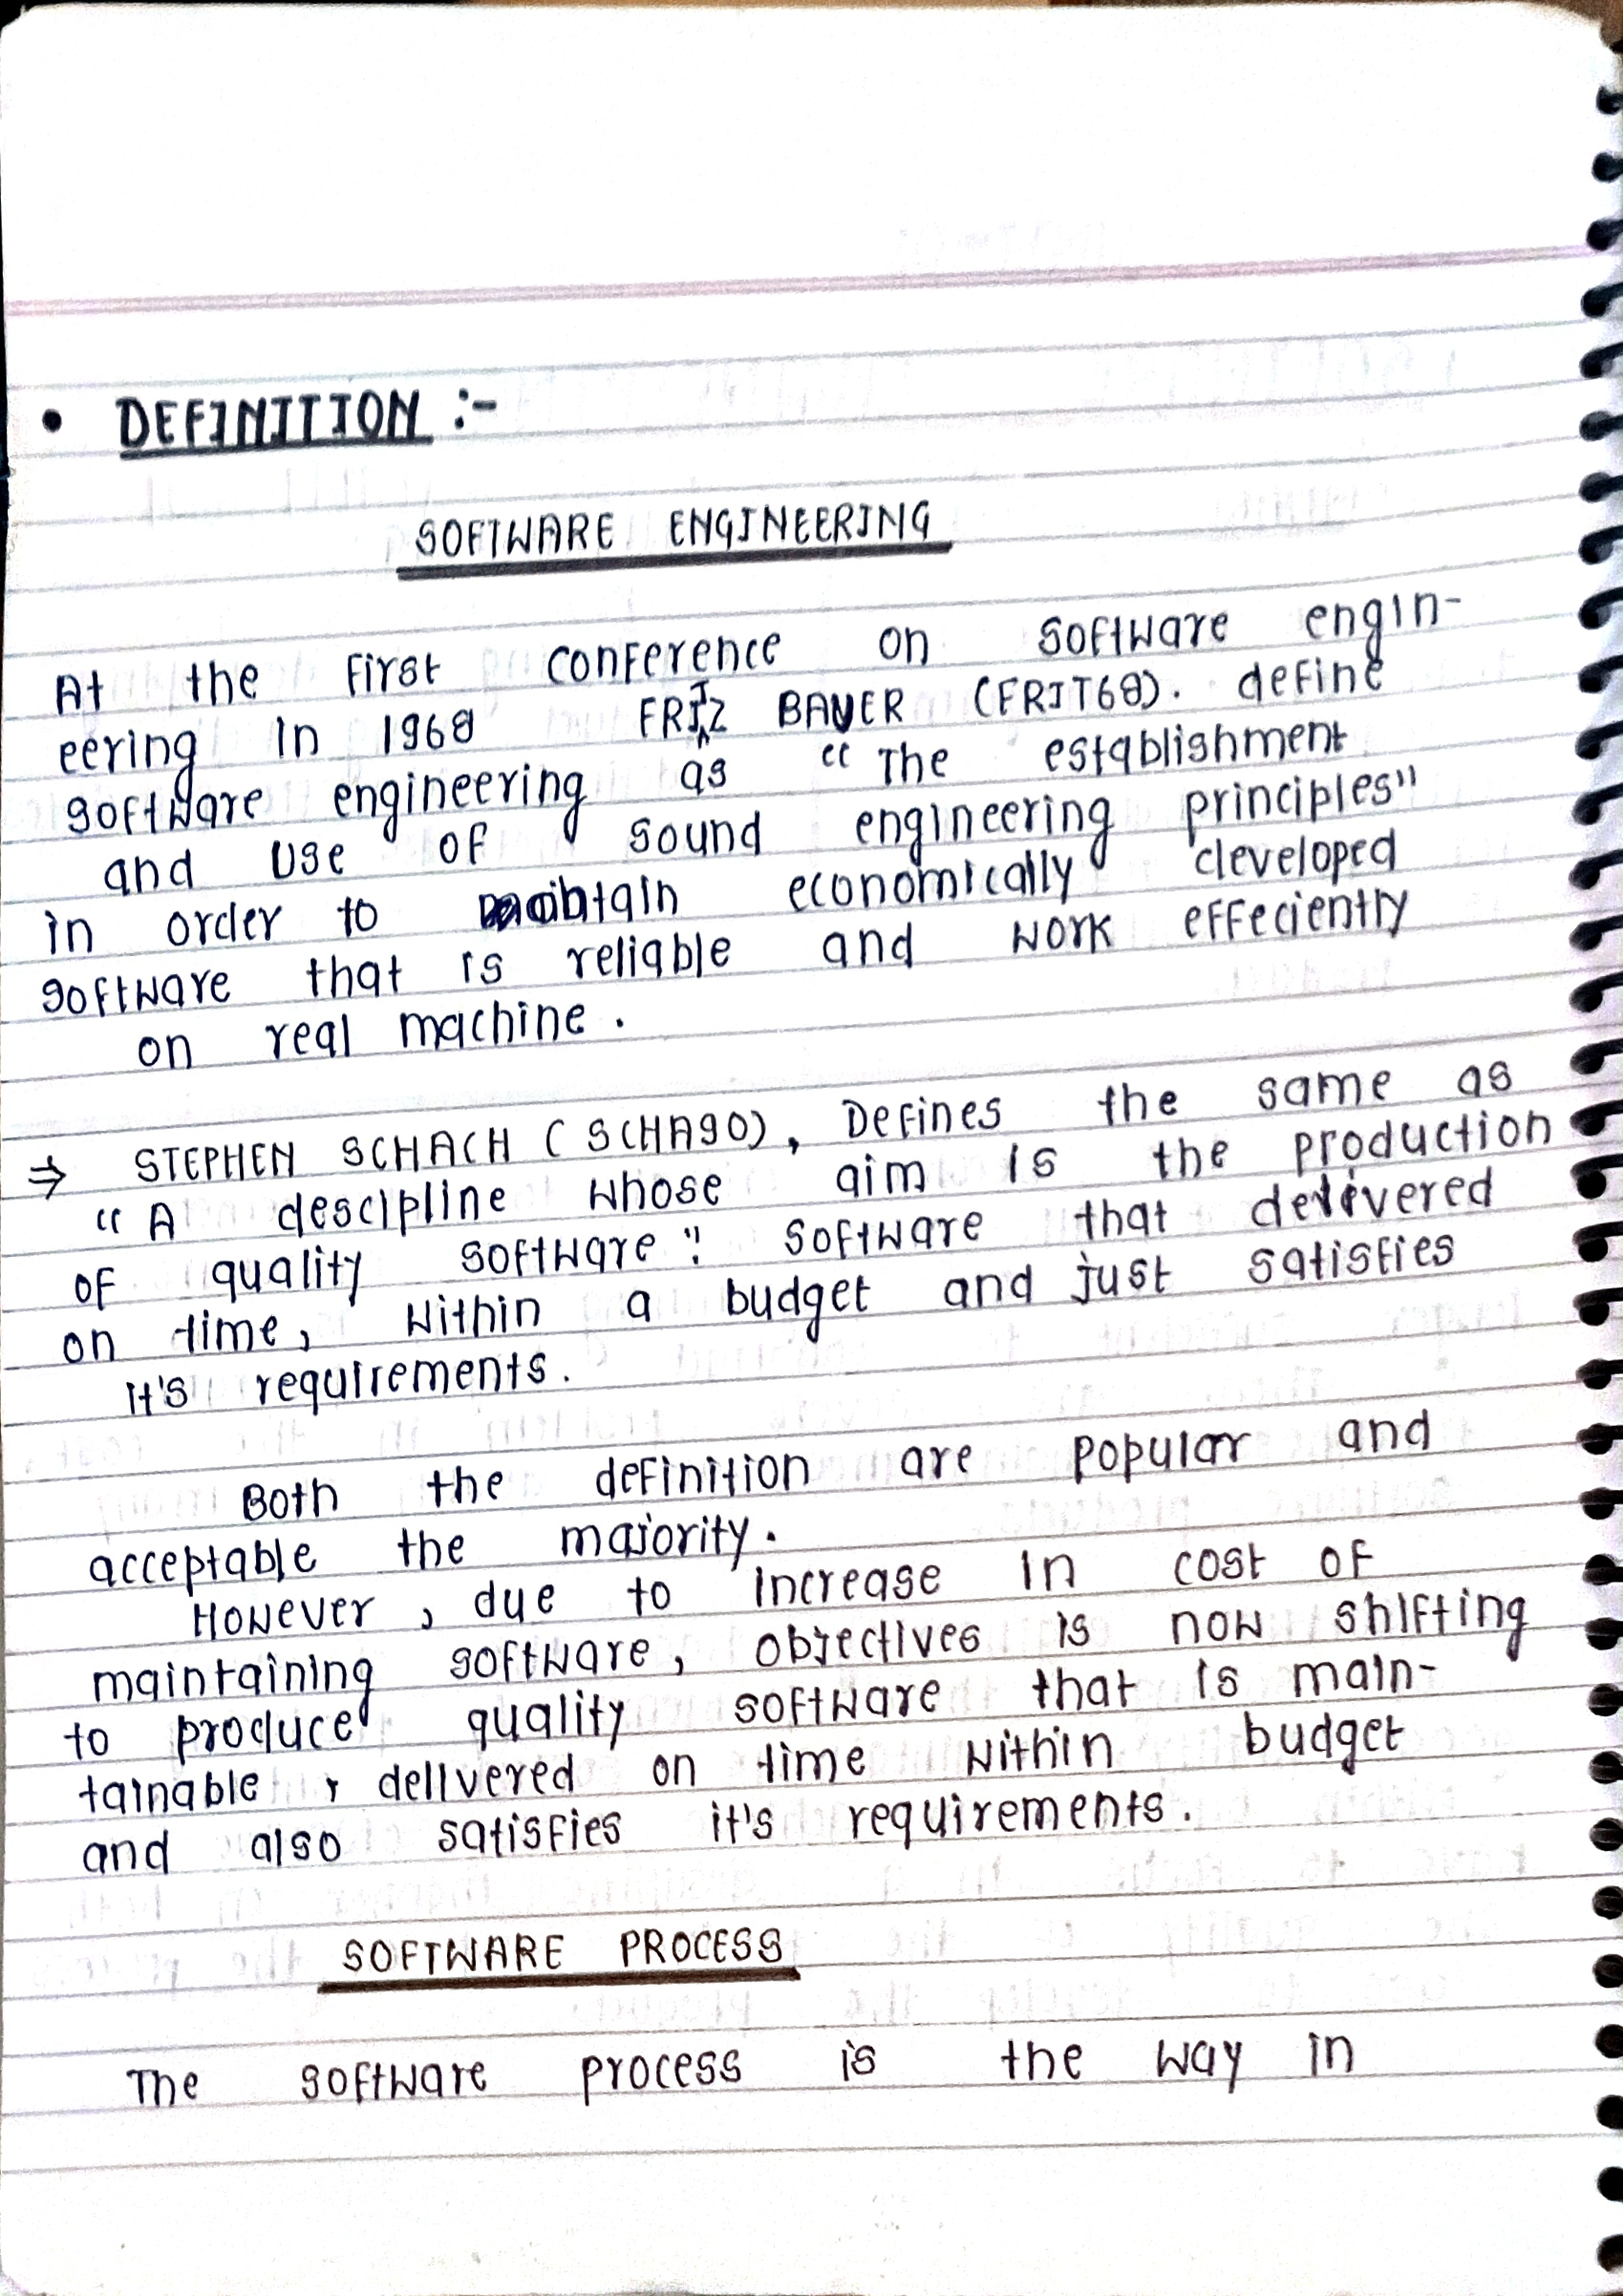 • DEFINITION :-
SOFTWARE ENGINEERING
At the first conference on software engin-
eering in 1968 FRITZ BAUER (FRIT68). define
software engineering as “ The establishment
and use of sound engineering principles”
in order to obtain economically developed
software that is reliable and work effeciently
on real machine .
⇒ STEPHEN SCHACH ( SCHA90) , Defines the same as
“ A descipline whose aim is the production
of quality software ". Software that delivered
on time , within a budget and just satisfies
it's requirements .
Both the definition are popular and
acceptable the majority .
However , due to increase in cost of
maintaining software , objectives is now shifting
to produce quality software that is main-
tainable , delivered on time within budget
and also satisfies it's requirements .
SOFTWARE PROCESS
The software process is the way in